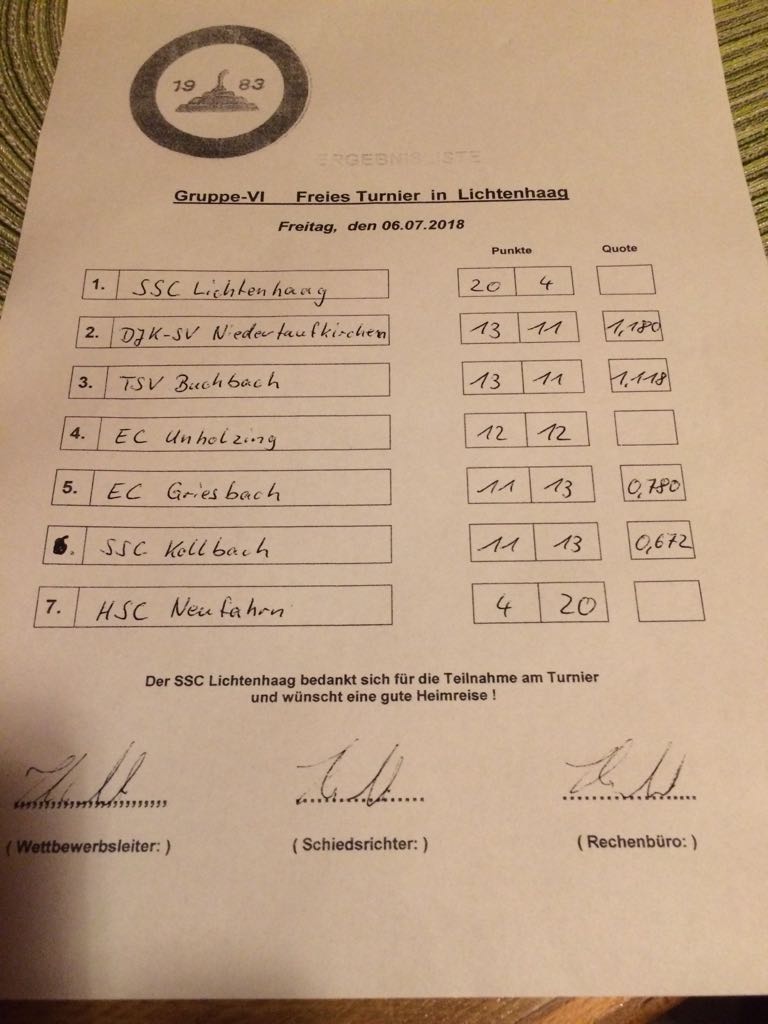 19 83
ERGEBNISLISTE
Gruppe-VI Freies Turnier in Lichtenhaag
Freitag, den 06.07.2018
Punkte Quote
1. SSC Lichtenhaag 20 4
2. DJK-SV Niedertaufkirchen 13 11 1,180
3. TSV Buchbach 13 11 1,118
4. EC Unholzing 12 12
5. EC Griesbach 11 13 0,780
6. SSC Kollbach 11 13 0,672
7. HSC Neufahrn 4 20
Der SSC Lichtenhaag bedankt sich für die Teilnahme am Turnier
und wünscht eine gute Heimreise !
( Wettbewerbsleiter: ) ( Schiedsrichter: ) ( Rechenbüro: )